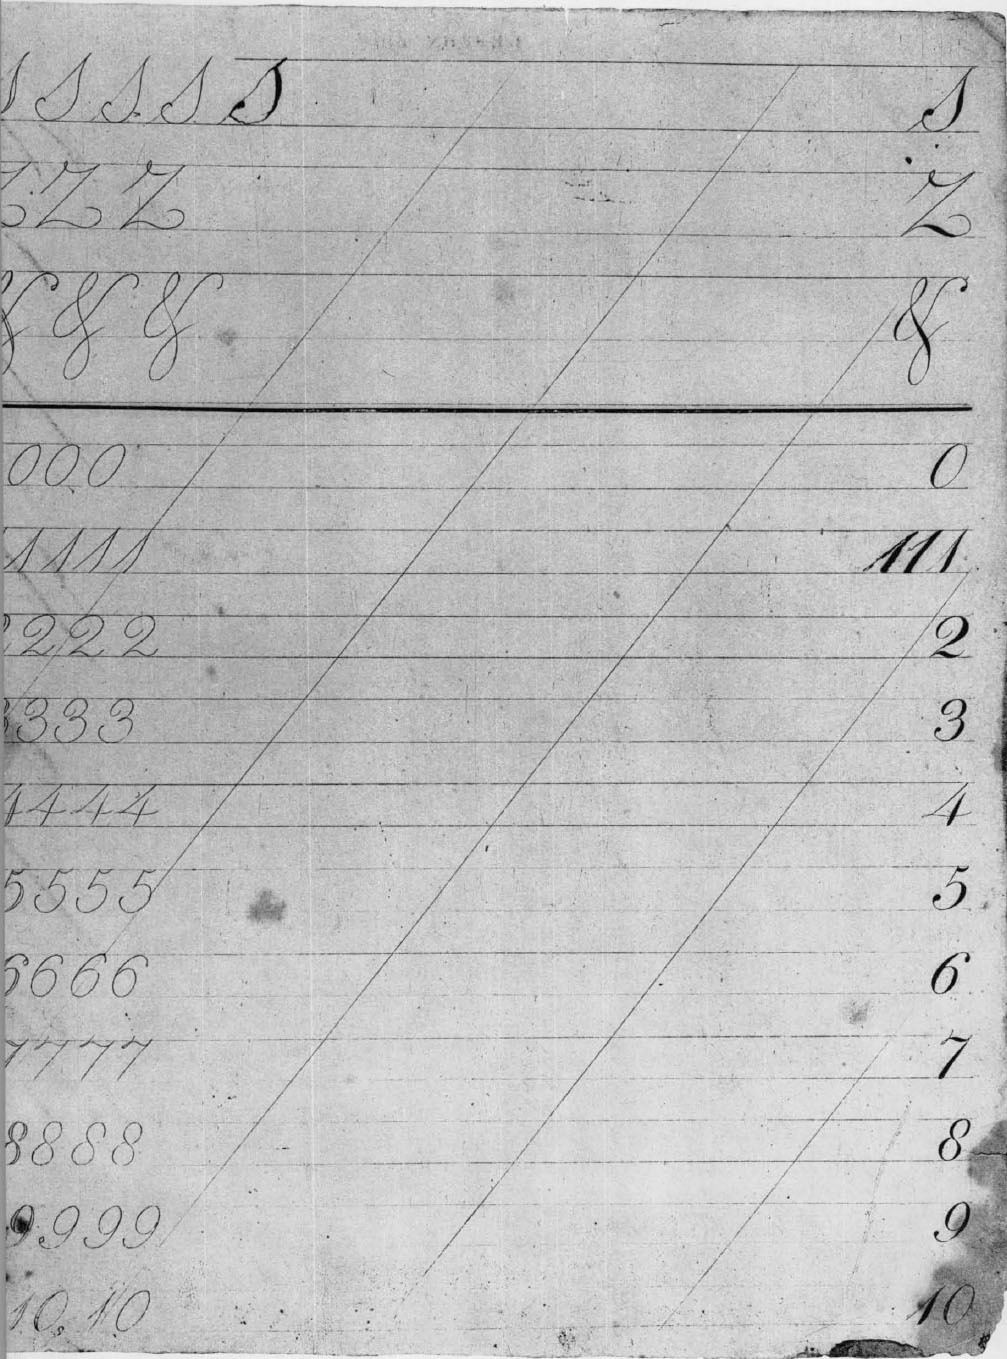 S S S S S S
Z Z Z Z
& & & &
0 0 0 0
1 1 1 1 111
2 2 2 2 2
3 3 3 3 3
4 4 4 4 4
5 5 5 5 5
6 6 6 6 6
7 7 7 7 7
8 8 8 8 8
9 9 9 9 9
10. 10 10